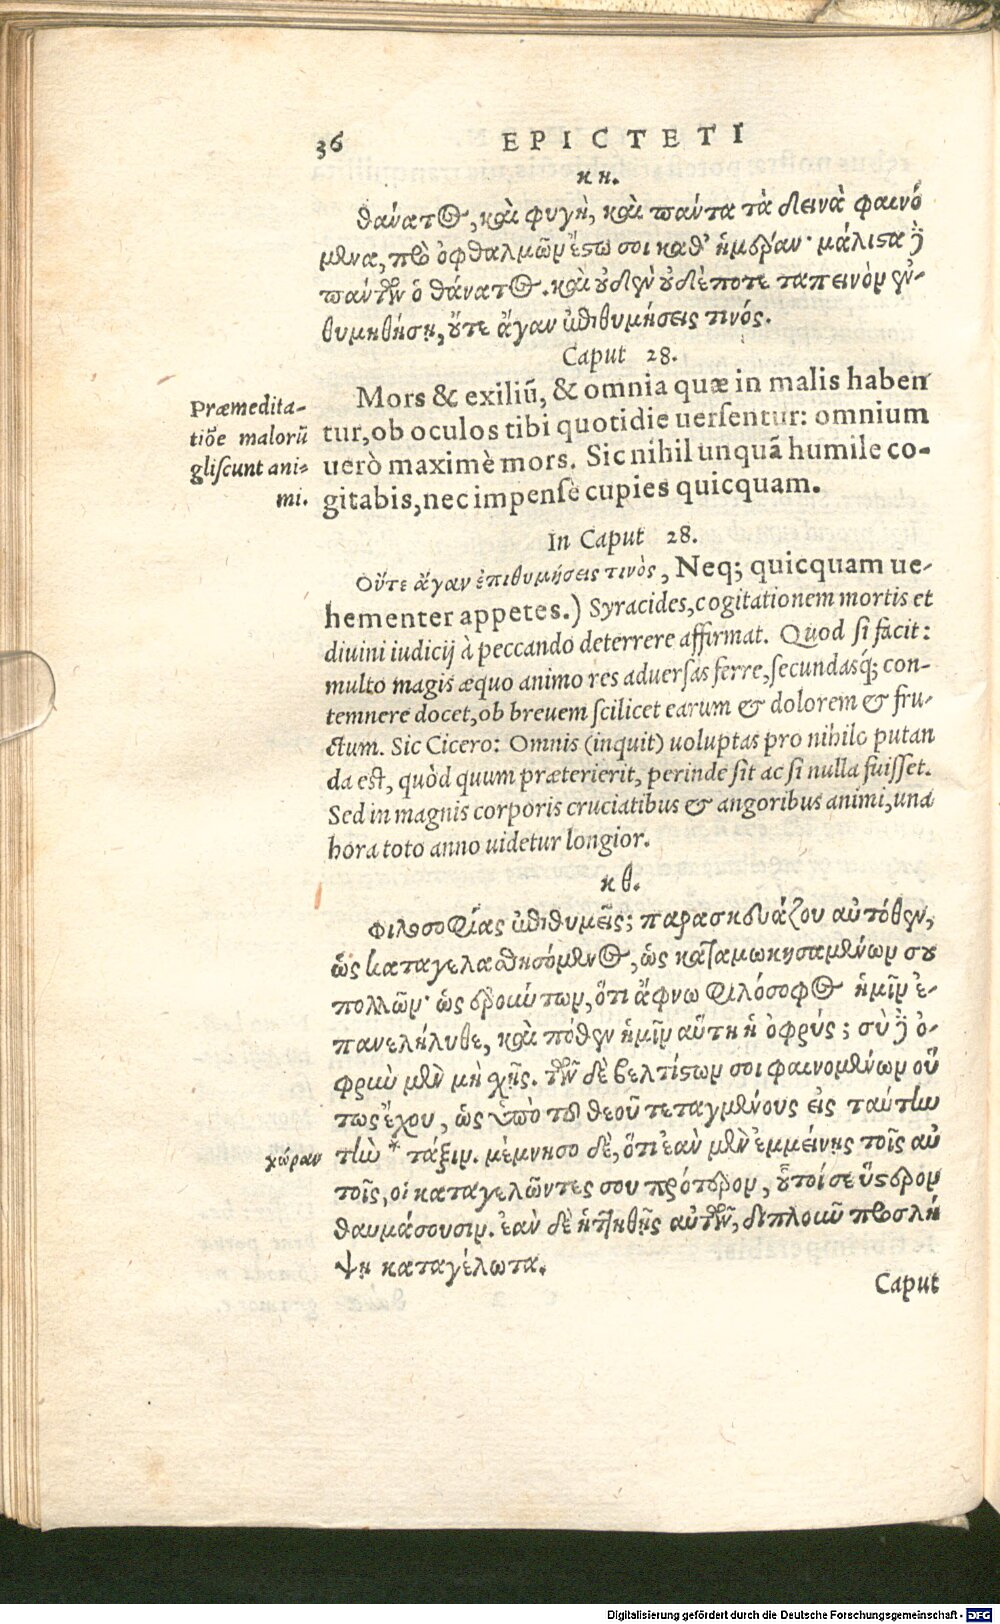 36 EPICTETI
κη.
θάνατος, καὶ φυγὴ, καὶ πάντα τὰ δεινὰ φαινό
μενα, πρὸ ὀφθαλμῶν ἔστω σοι καθ' ἡμέραν· μάλιστα δὲ
πάντων ὁ θάνατος. καὶ οὐδὲν οὐδέποτε ταπεινὸν ἐν-
θυμηθήσῃ, οὔτε ἄγαν ἐπιθυμήσεις τινός.
Caput 28.
Mors & exiliū, & omnia quæ in malis haben
tur, ob oculos tibi quotidie uersentur: omnium
uerò maximè mors. Sic nihil unquā humile co-
gitabis, nec impensè cupies quicquam.
Præmedita-
tiõe malorū
gliscunt ani-
mi.
In Caput 28.
Οὔτε ἄγαν ἐπιθυμήσεις τινὸς, Neq; quicquam ue-
hementer appetes.) Syracides, cogitationem mortis et
diuini iudicij à peccando deterrere affirmat. Quod si facit:
multo magis æquo animo res aduersas ferre, secundasq́; con-
temnere docet, ob breuem scilicet earum & dolorem & fru-
ctum. Sic Cicero: Omnis (inquit) uoluptas pro nihilo putan
da est, quòd quum præterierit, perinde sit ac si nulla fuisset.
Sed in magnis corporis cruciatibus & angoribus animi, una
hora toto anno uidetur longior.
κθ.
Φιλοσοφίας ἐπιθυμεῖς; παρασκευάζου αὐτόθεν,
ὡς καταγελασθησόμενος, ὡς καταμωκησαμένων σου
πολλῶν· ὡς ἐρούντων, ὅτι ἄφνω φιλόσοφος ἡμῖν ἐ-
πανελήλυθε, καὶ πόθεν ἡμῖν αὕτη ἡ ὀφρύς; σὺ δὲ ὀ-
φρὺν μὲν μὴ σχῇς. τῶν δὲ βελτίστων σοι φαινομένων οὕ
τως ἔχου, ὡς ὑπὸ τοῦ θεοῦ τεταγμένους εἰς ταύτην
χώραν
τὴν * τάξιν. μέμνησο δὲ, ὅτι ἐὰν μὲν ἐμμείνῃς τοῖς αὐ
τοῖς, οἱ καταγελῶντές σου πρότερον, οὗτοί σε ὕστερον
θαυμάσουσιν. ἐὰν δὲ ἡττηθῇς αὐτῶν, διπλοῦν προσλή
ψῃ καταγέλωτα.
Caput
Digitalisierung gefördert durch die Deutsche Forschungsgemeinschaft - DFG